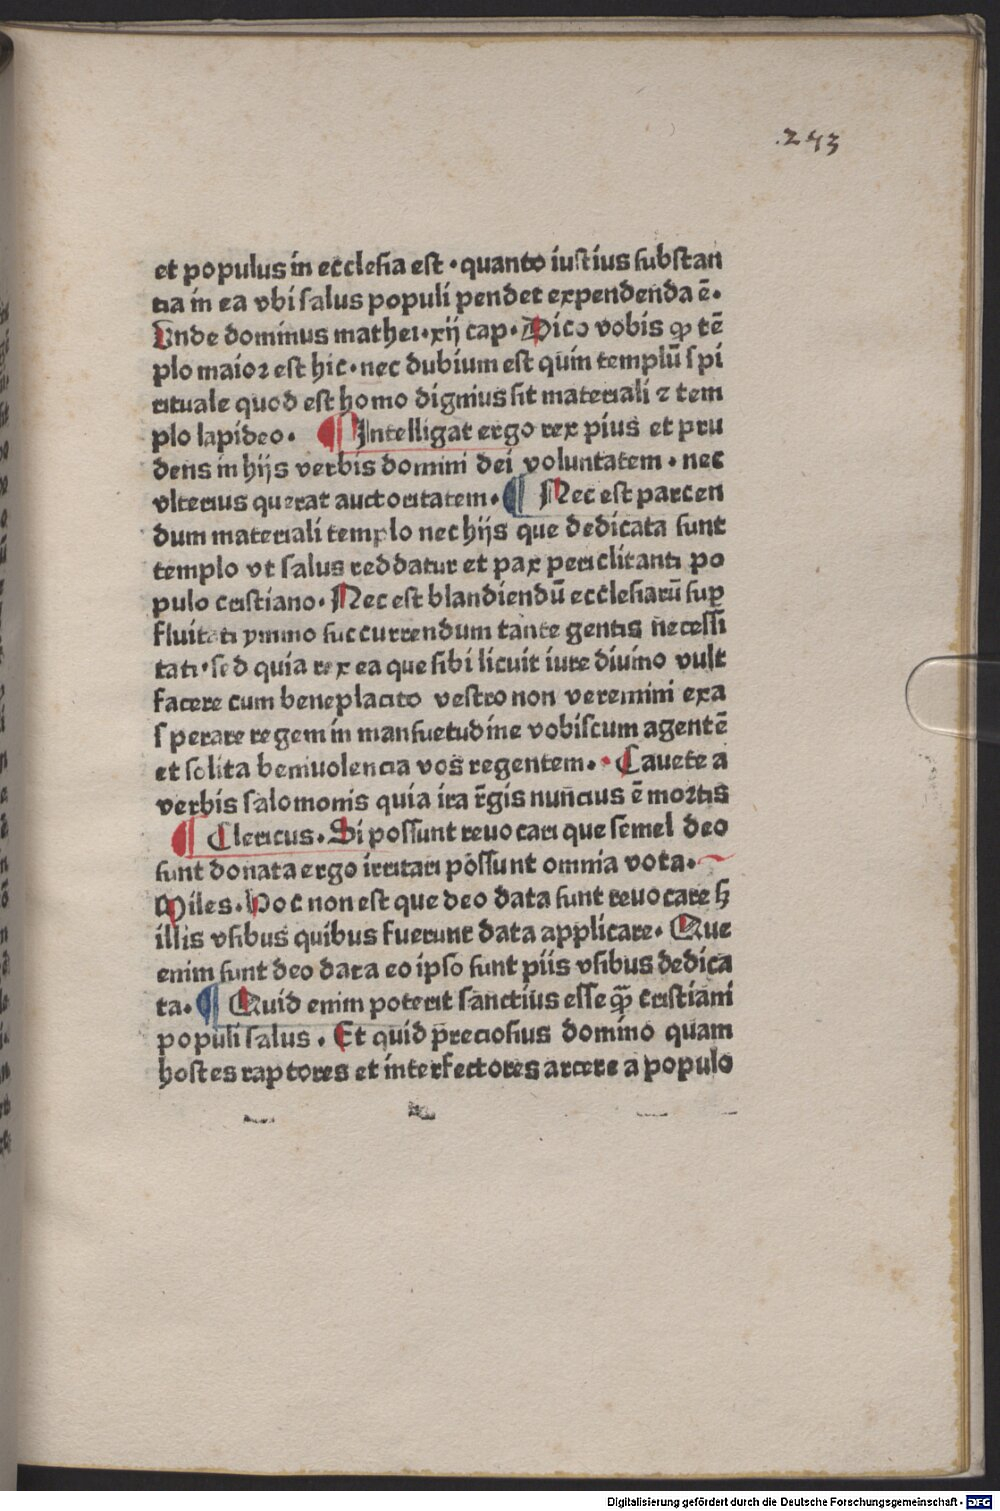 .243
et populus in ecclesia est · quanto iustius substan
tia in ea vbi salus populi pendet expendenda ē ·
Unde dominus mathei · xij cap · Dico vobis ꝙ tē
plo maior est hic · nec dubium est quin templū spi
rituale quod est homo dignius sit materiali ⁊ tem
plo lapideo · ¶ Intelligat ergo rex pius et pru
dens in hijs verbis domini dei voluntatem · nec
vlterius querat auctoritatem · ¶ Nec est parcen
dum materiali templo nec hijs que dedicata sunt
templo vt salus reddatur et pax periclitanti po
pulo cristiano · Nec est blandiendū ecclesiarū suꝑ
fluitati ymmo succurrendum tante gentis necessi
tati · sed quia rex ea que sibi licuit iure diuino vult
facere cum beneplacito vestro non veremini exa
sperare regem in mansuetudine vobiscum agentē
et solita beniuolencia vos regentem · Cauete a
verbis salomonis quia ira r̄gis nuncius ē mortis
¶ Clericus · Si possunt reuocari que semel deo
sunt donata ergo irritari possunt omnia vota ·
Miles · Hoc non est que deo data sunt reuocare ꜩ
illis vsibus quibus fuerunt data applicare · Que
enim sunt deo data eo ipso sunt piis vsibus dedica
ta · ¶ Quid enim poterit sanctius esse ꝙ̄ cristiani
populi salus · Et quid p̄reciosius domino quam
hostes raptores et interfectores arcere a populo
Digitalisierung gefördert durch die Deutsche Forschungsgemeinschaft - DFG